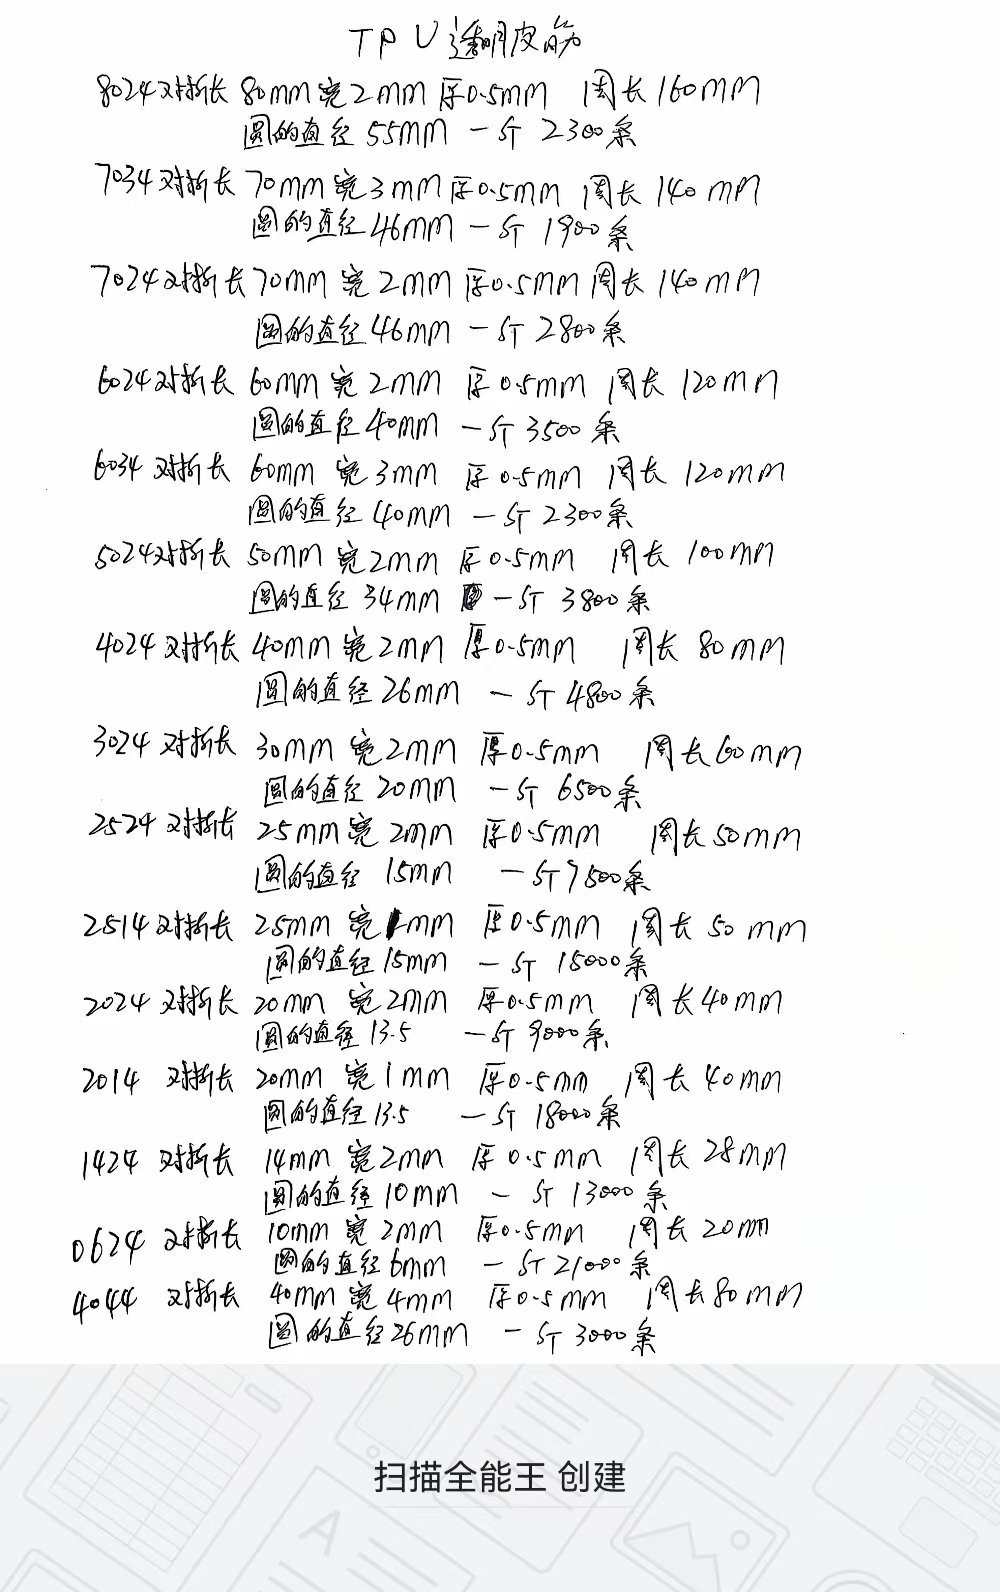 TPU透明皮筋
8024对折长 80mm 宽2mm 厚0.5mm 周长160mm
圆的直径55mm 一斤2300条
7034对折长 70mm宽3mm厚0.5mm 周长140mm
圆的直径46mm 一斤1900条
7024对折长70mm 宽2mm厚0.5mm周长140mm
圆的直径46mm 一斤2800条
6024对折长 60mm 宽2mm 厚0.5mm 周长120mm
圆的直径40mm 一斤3500条
6034对折长 60mm 宽3mm 厚0.5mm 周长120mm
圆的直径40mm 一斤2300条
5024对折长 50mm 宽2mm 厚0.5mm 周长100mm
圆的直径34mm 一斤3800条
4024对折长 40mm宽2mm 厚0.5mm 周长80mm
圆的直径26mm 一斤4800条
3024对折长 30mm 宽2mm 厚0.5mm 周长60mm
圆的直径20mm 一斤6500条
2524对折长 25mm宽2mm 厚0.5mm 周长50mm
圆的直径15mm 一斤7500条
2514对折长 25mm 宽1mm 厚0.5mm 周长50mm
圆的直径15mm 一斤15000条
2024对折长 20mm 宽2mm 厚0.5mm 周长40mm
圆的直径13.5 一斤9000条
2014 对折长 20mm 宽1mm 厚0.5mm 周长40mm
圆的直径13.5 一斤18000条
1424 对折长 14mm宽2mm 厚0.5mm 周长28mm
圆的直径10mm 一斤13000条
0624 对折长 10mm 宽2mm 厚0.5mm 周长20mm
圆的直径6mm 一斤21000条
4044 对折长 40mm宽4mm 厚0.5mm 周长80mm
圆的直径26mm 一斤3000条
扫描全能王 创建